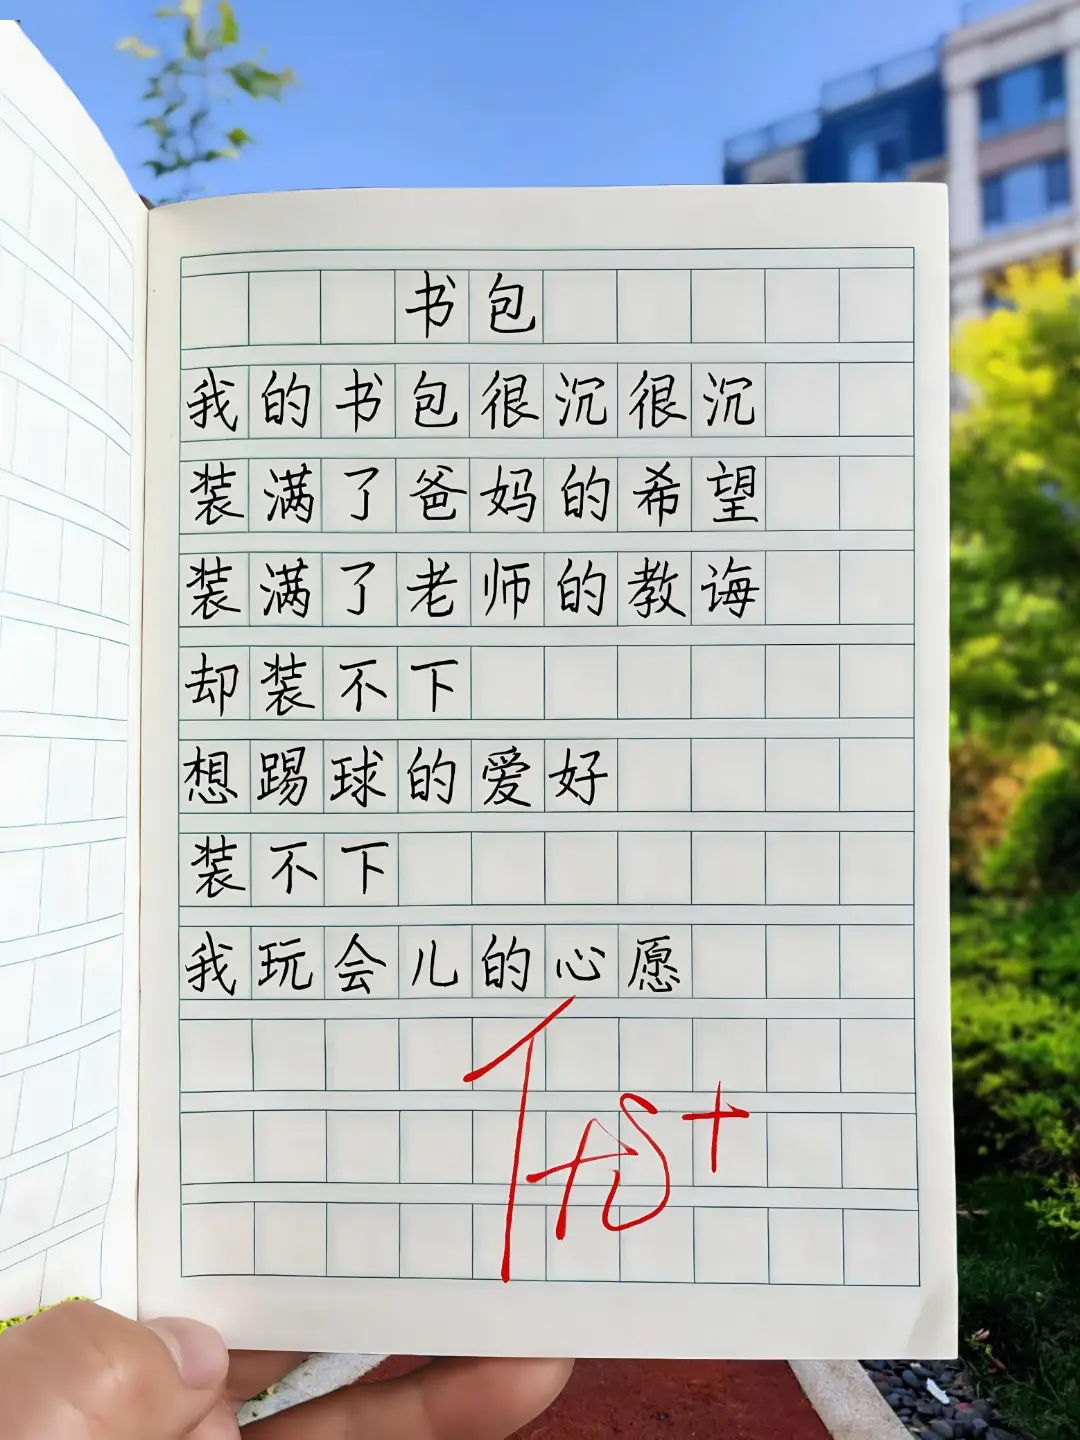 书包
我的书包很沉很沉
装满了爸妈的希望
装满了老师的教诲
却装不下
想踢球的爱好
装不下
我玩会儿的心愿